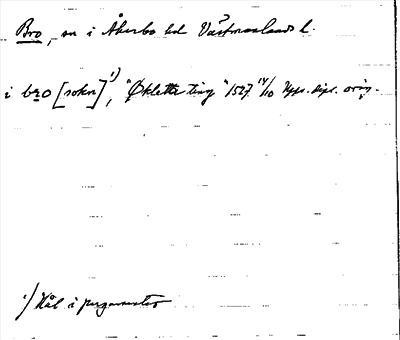 Bro, sn i Åkerbo hd Västmanlands l.
i bro [sokn]¹⁾, "Økletta ting" 1527 14/10 Upps. dipl. orig.
¹⁾ Hål i pergamentet